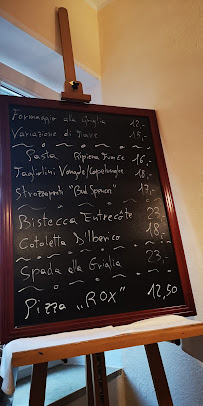 Formaggio alla Griglia 12,-
Variazione di Piave 19,-
Pasta Ripiena Funce 16,-
Tagliolini Vongole/Capelunghe 18,-
Strozzapreti "Bud Spencer" 17,-
Bistecca Entrecôte 23,-
Cotoletta D'Iberico 18,-
Spada alla Griglia 23,-
Pizza „ROX" 12,50